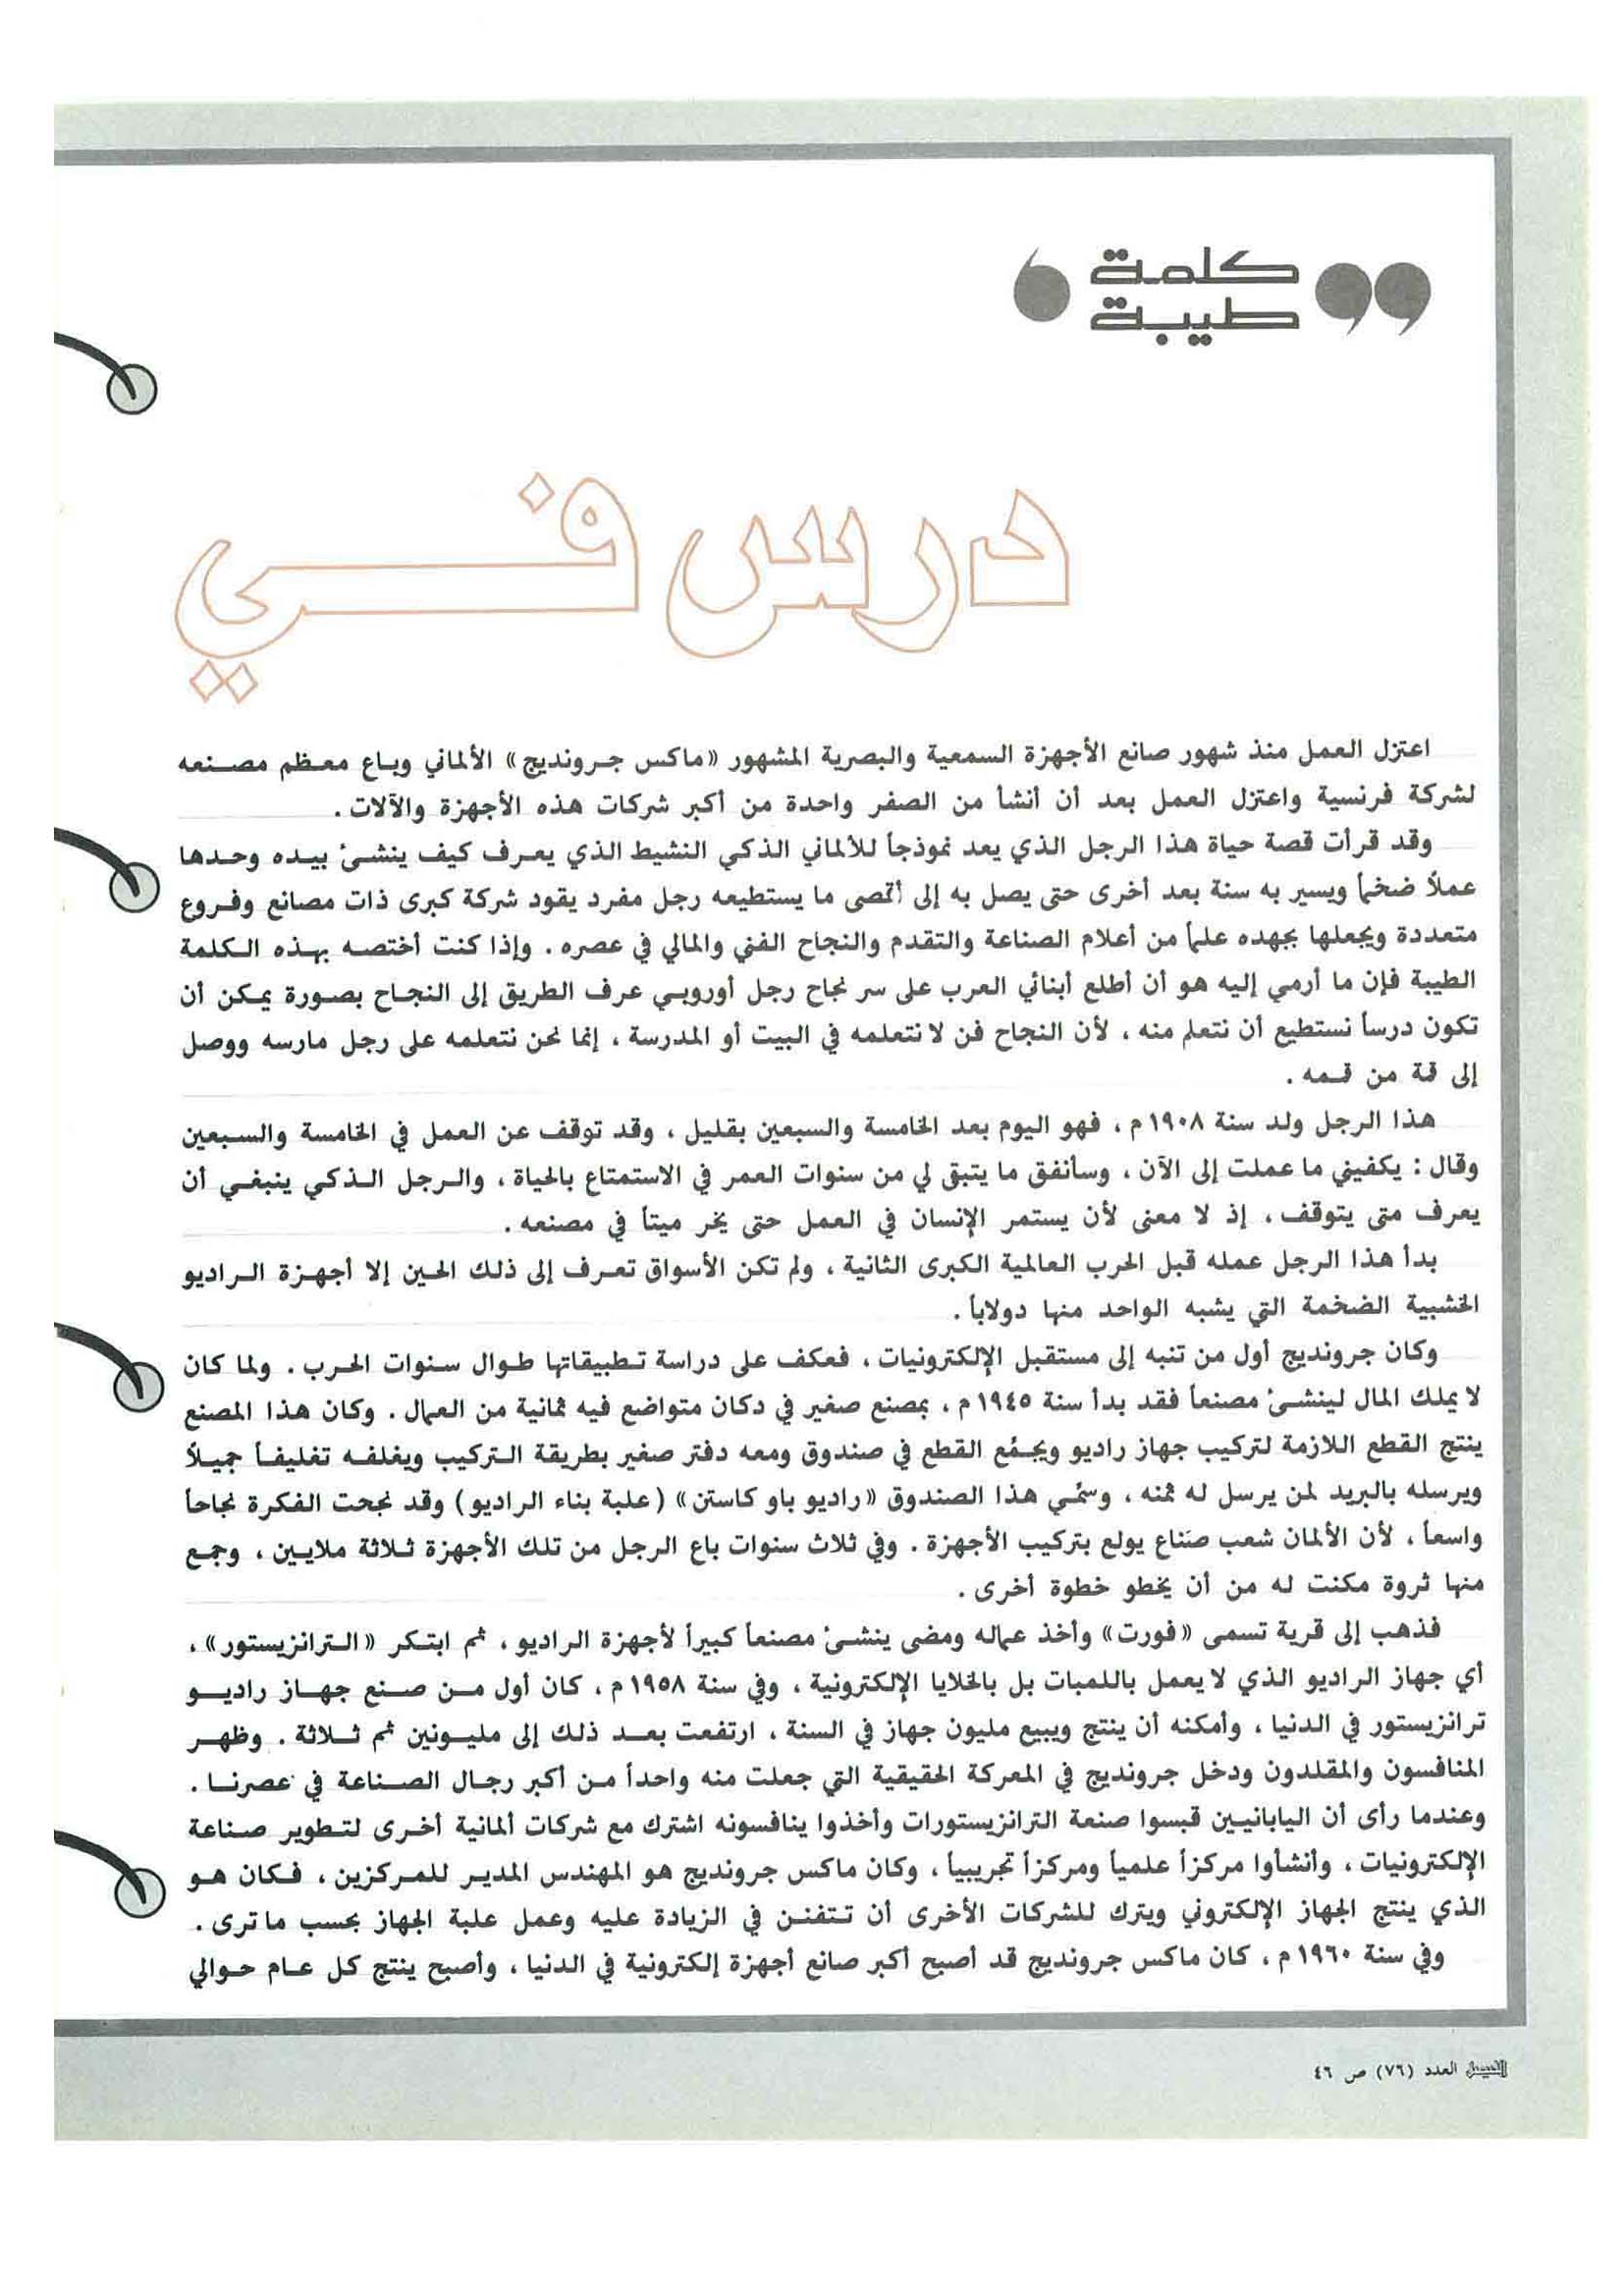 كلمة
طيبة
درس في
اعتزل العمل منذ شهور صانع الأجهزة السمعية والبصرية المشهور «ماكس جرونديج» الألماني وباع معظم مصنعه
لشركة فرنسية واعتزل العمل بعد أن أنشأ من الصفر واحدة من أكبر شركات هذه الأجهزة والآلات .
وقد قرأت قصة حياة هذا الرجل الذي يعد نموذجاً للألماني الذكي النشيط الذي يعرف كيف ينشئ بيده وحدها
عملاً ضخماً ويسير به سنة بعد أخرى حتى يصل به إلى أقصى ما يستطيعه رجل مفرد يقود شركة كبرى ذات مصانع وفروع
متعددة ويجعلها بجهده علماً من أعلام الصناعة والتقدم والنجاح الفني والمالي في عصره . وإذا كنت أختصه بهذه الكلمة
الطيبة فإن ما أرمي إليه هو أن أطلع أبنائي العرب على سر نجاح رجل أوروبي عرف الطريق إلى النجاح بصورة يمكن أن
تكون درساً نستطيع أن نتعلم منه ، لأن النجاح فن لا نتعلمه في البيت أو المدرسة ، إنما نحن نتعلمه على رجل مارسه ووصل
إلى قمة من قممه .
هذا الرجل ولد سنة ١٩٠٨ م ، فهو اليوم بعد الخامسة والسبعين بقليل ، وقد توقف عن العمل في الخامسة والسبعين
وقال : يكفيني ما عملت إلى الآن ، وسأنفق ما يتبقى لي من سنوات العمر في الاستمتاع بالحياة ، والرجل الذكي ينبغي أن
يعرف متى يتوقف ، إذ لا معنى لأن يستمر الإنسان في العمل حتى يخر ميتاً في مصنعه .
بدأ هذا الرجل عمله قبل الحرب العالمية الكبرى الثانية ، ولم تكن الأسواق تعرف إلى ذلك الحين إلا أجهزة الراديو
الخشبية الضخمة التي يشبه الواحد منها دولاباً .
وكان جرونديج أول من تنبه إلى مستقبل الإلكترونيات ، فعكف على دراسة تطبيقاتها طوال سنوات الحرب . ولما كان
لا يملك المال لينشئ مصنعاً فقد بدأ سنة ١٩٤٥ م ، بمصنع صغير في دكان متواضع فيه ثمانية من العمال . وكان هذا المصنع
ينتج القطع اللازمة لتركيب جهاز راديو ويجمِّع القطع في صندوق ومعه دفتر صغير بطريقة التركيب ويغلفه تغليفاً جميلاً
ويرسله بالبريد لمن يرسل له ثمنه ، وسمِّي هذا الصندوق «راديو باو كاستن» (علبة بناء الراديو) وقد نجحت الفكرة نجاحاً
واسعاً ، لأن الألمان شعب صنَّاع يولع بتركيب الأجهزة . وفي ثلاث سنوات باع الرجل من تلك الأجهزة ثلاثة ملايين ، وجمع
منها ثروة مكنت له من أن يخطو خطوة أخرى .
فذهب إلى قرية تسمى «فورت» وأخذ عماله ومضى ينشئ مصنعاً كبيراً لأجهزة الراديو ، ثم ابتكر «الترانزيستور» ،
أي جهاز الراديو الذي لا يعمل باللمبات بل بالخلايا الإلكترونية ، وفي سنة ١٩٥٨ م ، كان أول من صنع جهاز راديو
ترانزيستور في الدنيا ، وأمكنه أن ينتج ويبيع مليون جهاز في السنة ، ارتفعت بعد ذلك إلى مليونين ثم ثلاثة . وظهر
المنافسون والمقلدون ودخل جرونديج في المعركة الحقيقية التي جعلت منه واحداً من أكبر رجال الصناعة في عصرنا .
وعندما رأى أن اليابانيين قبسوا صنعة الترانزيستورات وأخذوا ينافسونه اشترك مع شركات ألمانية أخرى لتطوير صناعة
الإلكترونيات ، وأنشأوا مركزاً علمياً ومركزاً تجريبياً ، وكان ماكس جرونديج هو المهندس المدير للمركزين ، فكان هو
الذي ينتج الجهاز الإلكتروني ويترك للشركات الأخرى أن تتفنن في الزيادة عليه وعمل علبة الجهاز بحسب ما ترى .
وفي سنة ١٩٦٠ م ، كان ماكس جرونديج قد أصبح أكبر صانع أجهزة إلكترونية في الدنيا ، وأصبح ينتج كل عام حوالي
الفيصل العدد (٧٦) ص ٤٦